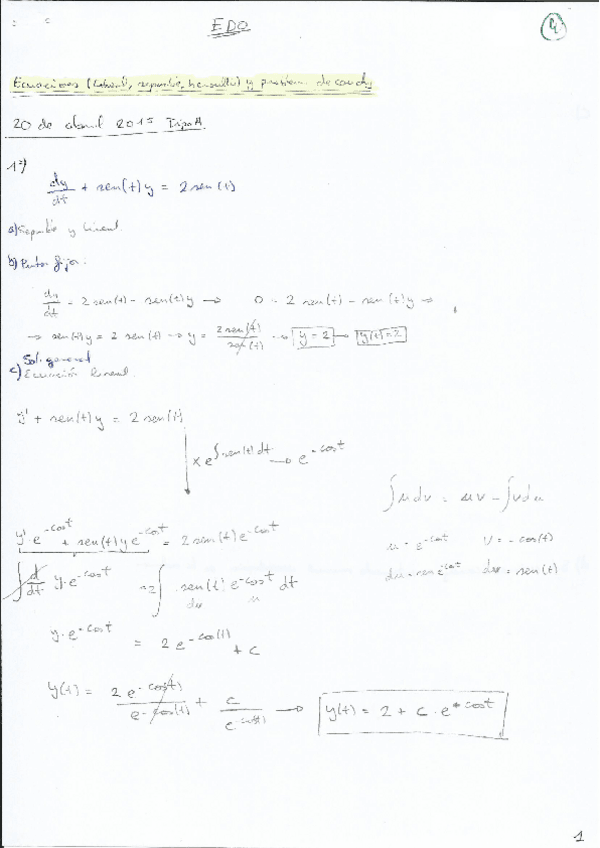 EDO
Ecuaciones (lineal, separable, ) y problema de cauchy
20 de abril 2015 Tipo A
1º)
dy/dt + sen(t) y = 2 sen(t)
a) Separable y lineal
b) Puntos fijos:
dy/dt = 2 sen(t) - sen(t) y → 0 = 2 sen(t) - sen(t) y →
→ sen(t) y = 2 sen(t) → y = 2 sen(t)/sen(t) → y = 2 → y(t) = 2
Sol. general
c) Ecuación lineal
y' + sen(t) y = 2 sen(t)
x e^∫sen(t) dt → e^-cost
∫u dv = uv - ∫v du
y' · e^-cost + sen(t) y e^-cost = 2 sen(t) e^-cost
u = e^-cost V = -cos(t)
∫ d/dt y · e^-cost = 2 ∫ sen(t) e^-cost dt
dv u
du = sen e^-cost dv = sen(t)
y · e^-cost = 2 e^-cos(t) + c
y(t) = 2 e^-cos(t)/e^-cos(t) + c/e^-cos(t) → y(t) = 2 + c · e^+cost
1